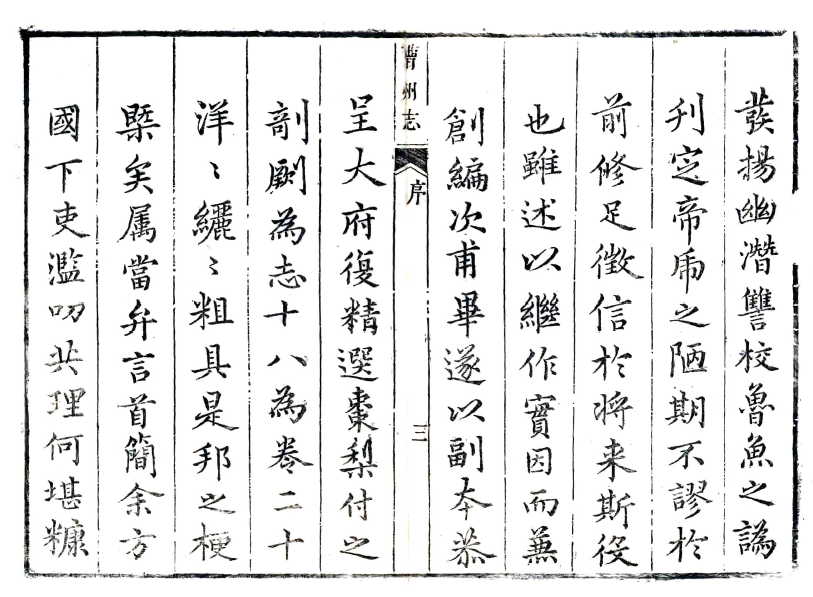 發揚幽潛讐校魯魚之譌
刋定帝乕之陋期不謬於
前修足徵信於將来斯役
也雖述以繼作實因而兼
創編次甫畢遂以副本恭
曹州志
序
三
呈大府復精選棗梨付之
剞劂為志十八為卷二十
洋〻纚〻粗具是邦之梗
槩矣属當弁言首簡余方
國下吏濫叨共理何堪糠